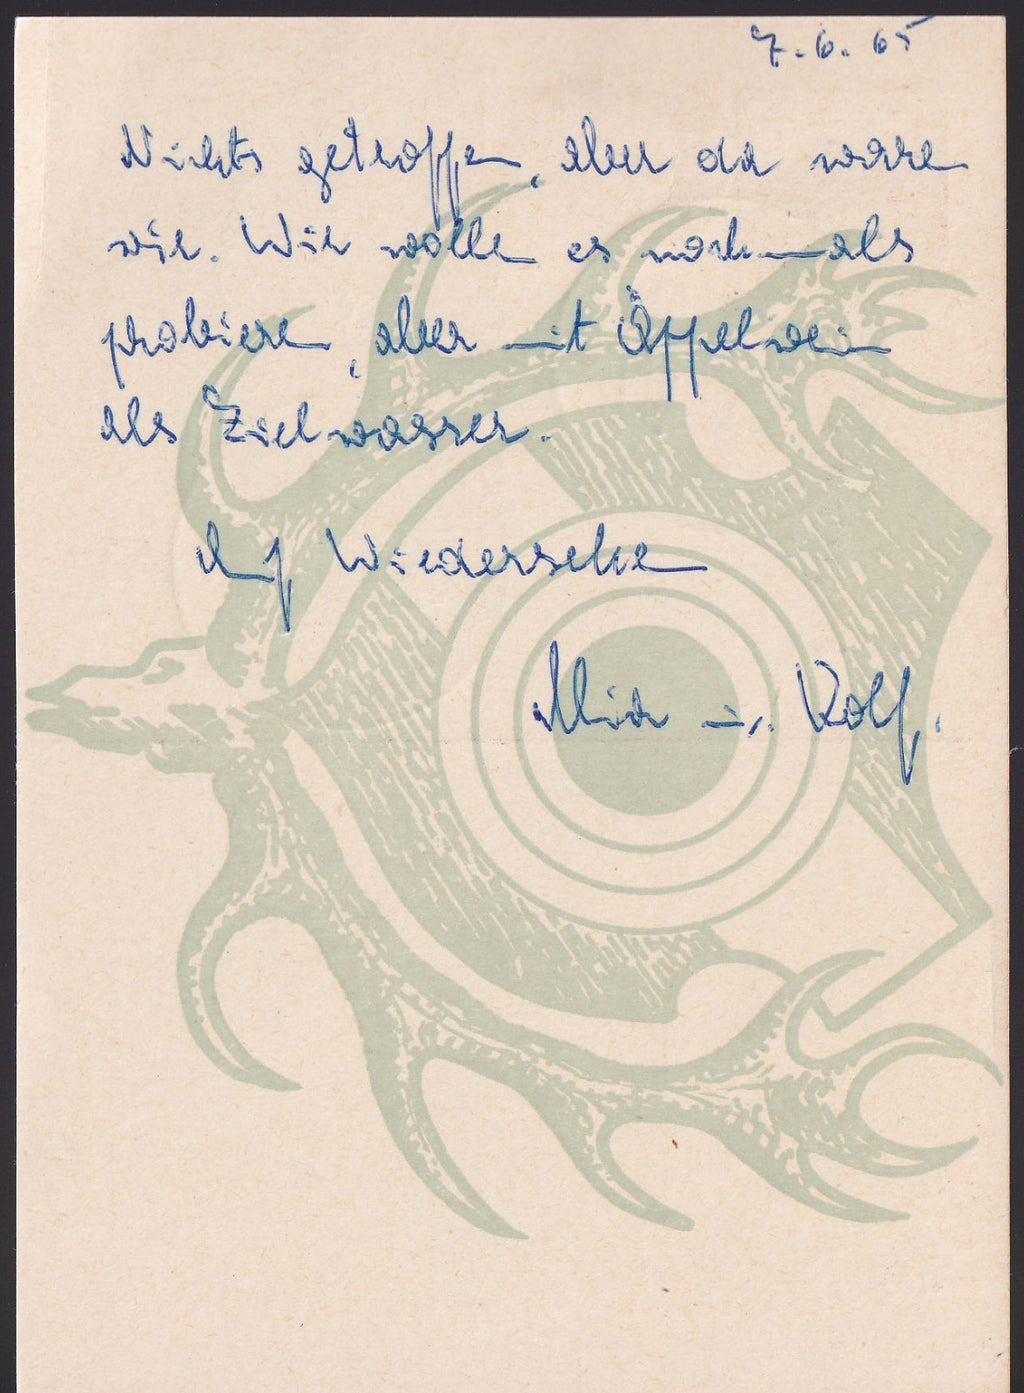 7.6.65
Nichts getroffen, aber da ware
wir. Wir wolle es nochmals
probiere, aber mit Äppelwein
als Zielwasser.
Auf Wiedersehe
u. Rolf.